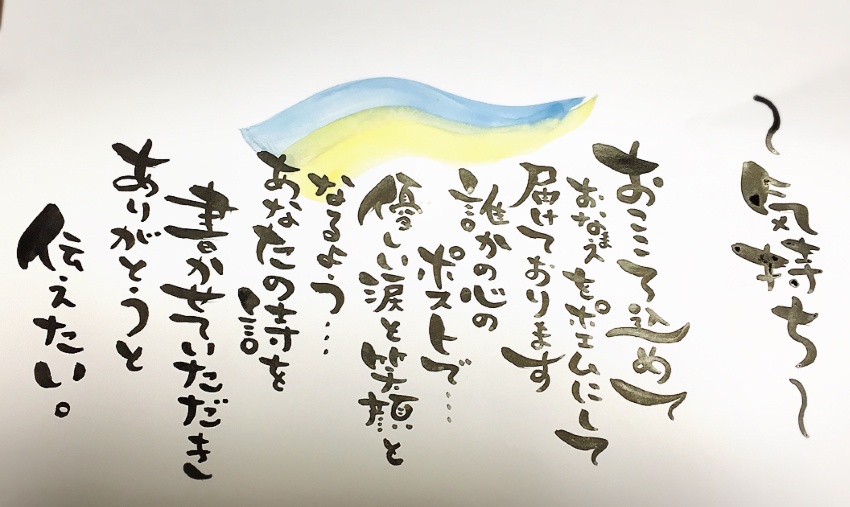 ～気持ち～
おこころ込めて
おなまえをポエムにして
届けております
誰かの心の
ポストで…
優しい涙と笑顔と
なるよう…
あなたの詩を
書かせていただき
ありがとうと
伝えたい。